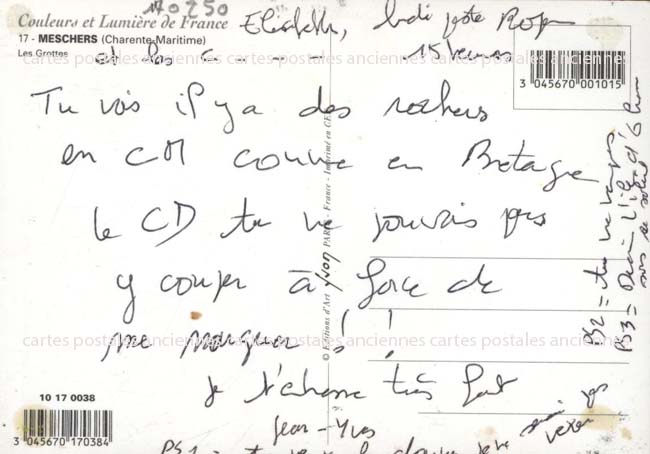 170250
Couleurs et Lumière de France
17 - MESCHERS (Charente-Maritime)
Les Grottes
Elisabeth,
15 heures
3 045670 001015
cartes postales anciennes cartes postales anciennes cartes postales anciennes cartes postales anciennes
Tu vois il y a des rochers
en CM comme en Bretagne
le CD tu ne pouvais pas
y couper à force de
me manquer !!
je t'
très fort
Jean-Yves
© Editions d'Art yvon PARIS - France - Imprimé en CE
cartes postales anciennes cartes postales anciennes cartes postales anciennes cartes postales anciennes
10 17 0038
3 045670 170384
PS1 =
PS2 = tu
PS3 = Demain l'île d'